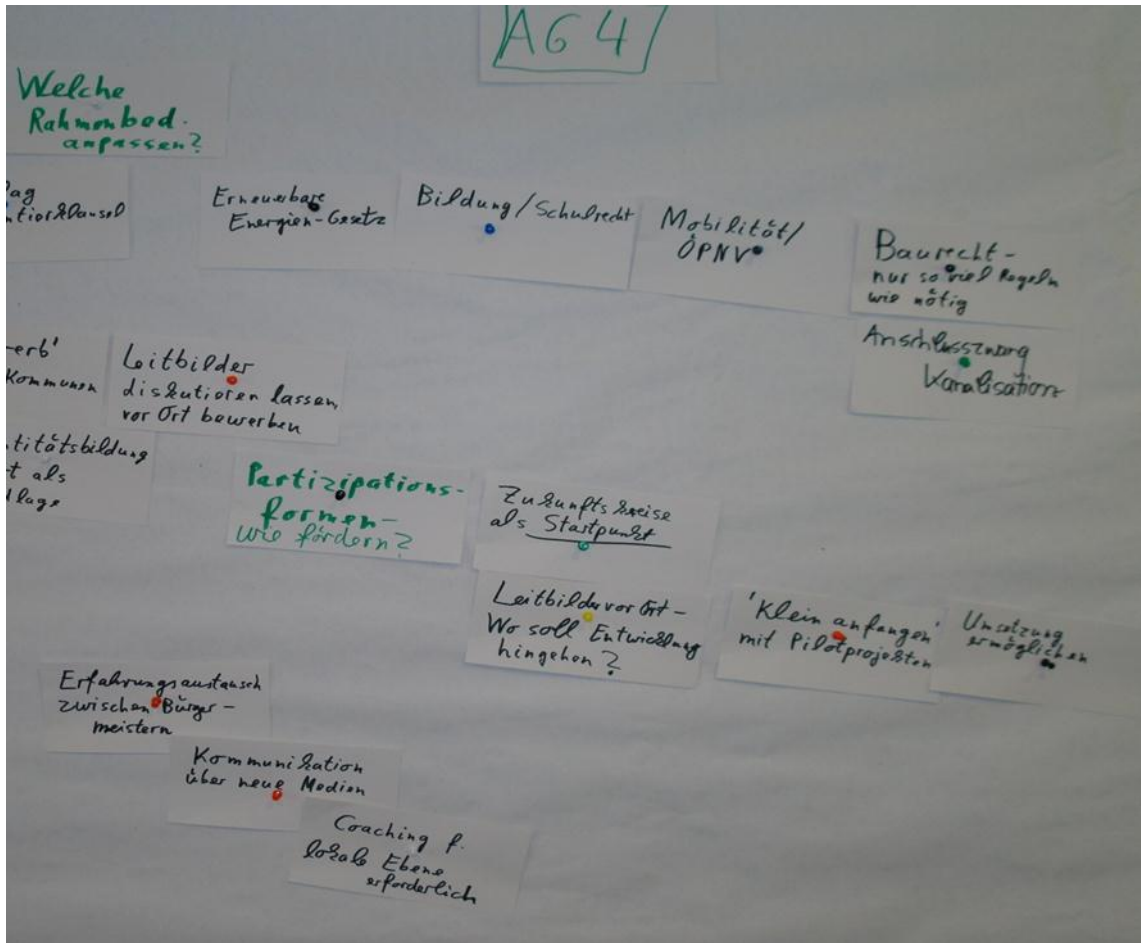 AG 4
Welche
Rahmenbed.
anpassen?
Erneuerbare
Energien-Gesetz
Bildung/Schulrecht
Mobilität/
ÖPNV
Baurecht -
nur so viel Regeln
wie nötig
Anschlusszwang
Kanalisation
-erb'
Kommunen
Leitbilder
diskutieren lassen,
vor Ort bewerben
titätsbildung
t als
dlage
Partizipations-
formen-
wie fördern?
Zukunftskreise
als Startpunkt
Leitbilder vor Ort -
Wo soll Entwicklung
hingehen?
'Klein anfangen'
mit Pilotprojekten
Umsetzung
ermöglichen
Erfahrungsaustausch
zwischen Bürger-
meistern
Kommunikation
über neue Medien
Coaching f.
lokale Ebene
erforderlich